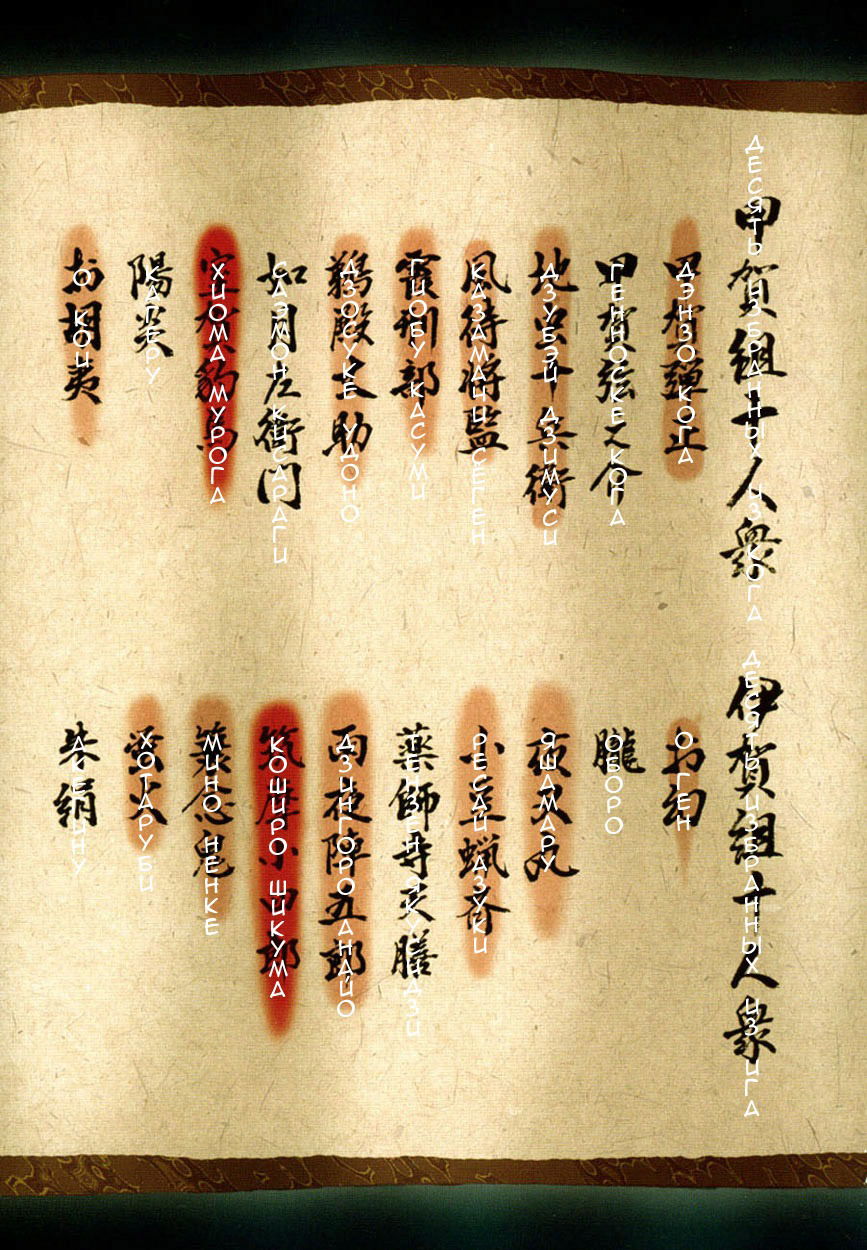 甲賀組十人衆
ДЕСЯТЬ ИЗБРАННЫХ ИЗ КОГА
甲賀弾正
ДЭНЗО КОГА
甲賀弦之介
ГЕННОСКЕ КОГА
地虫十兵衛
ДЗУБЭЙ ДЗИМУСИ
風待将監
КАЗАМАЧИ СЕГЕН
霞刑部
ГИОБУ КАСУМИ
鵜殿丈助
ДЗОСУКЕ УДОНО
如月左衛門
САЭМОН КИСАРАГИ
室賀豹馬
ХИОМА МУРОГА
陽炎
КАГЕРУ
お胡夷
О КОИ
伊賀組十人衆
ДЕСЯТЬ ИЗБРАННЫХ ИЗ ИГА
お幻
О ГЕН
朧
ОБОРО
夜叉丸
ЯШАМАРУ
小豆蝋斎
РЕСАЙ АЗУКИ
薬師寺天膳
雨夜陣五郎
ДЗИНГОРО АМАЙО
筑摩小四郎
КОШИРО ШИКУМА
蓑念鬼
МИНО НЕНКЕ
蛍火
ХОТАРУБИ
朱絹
АКЕГИНУ